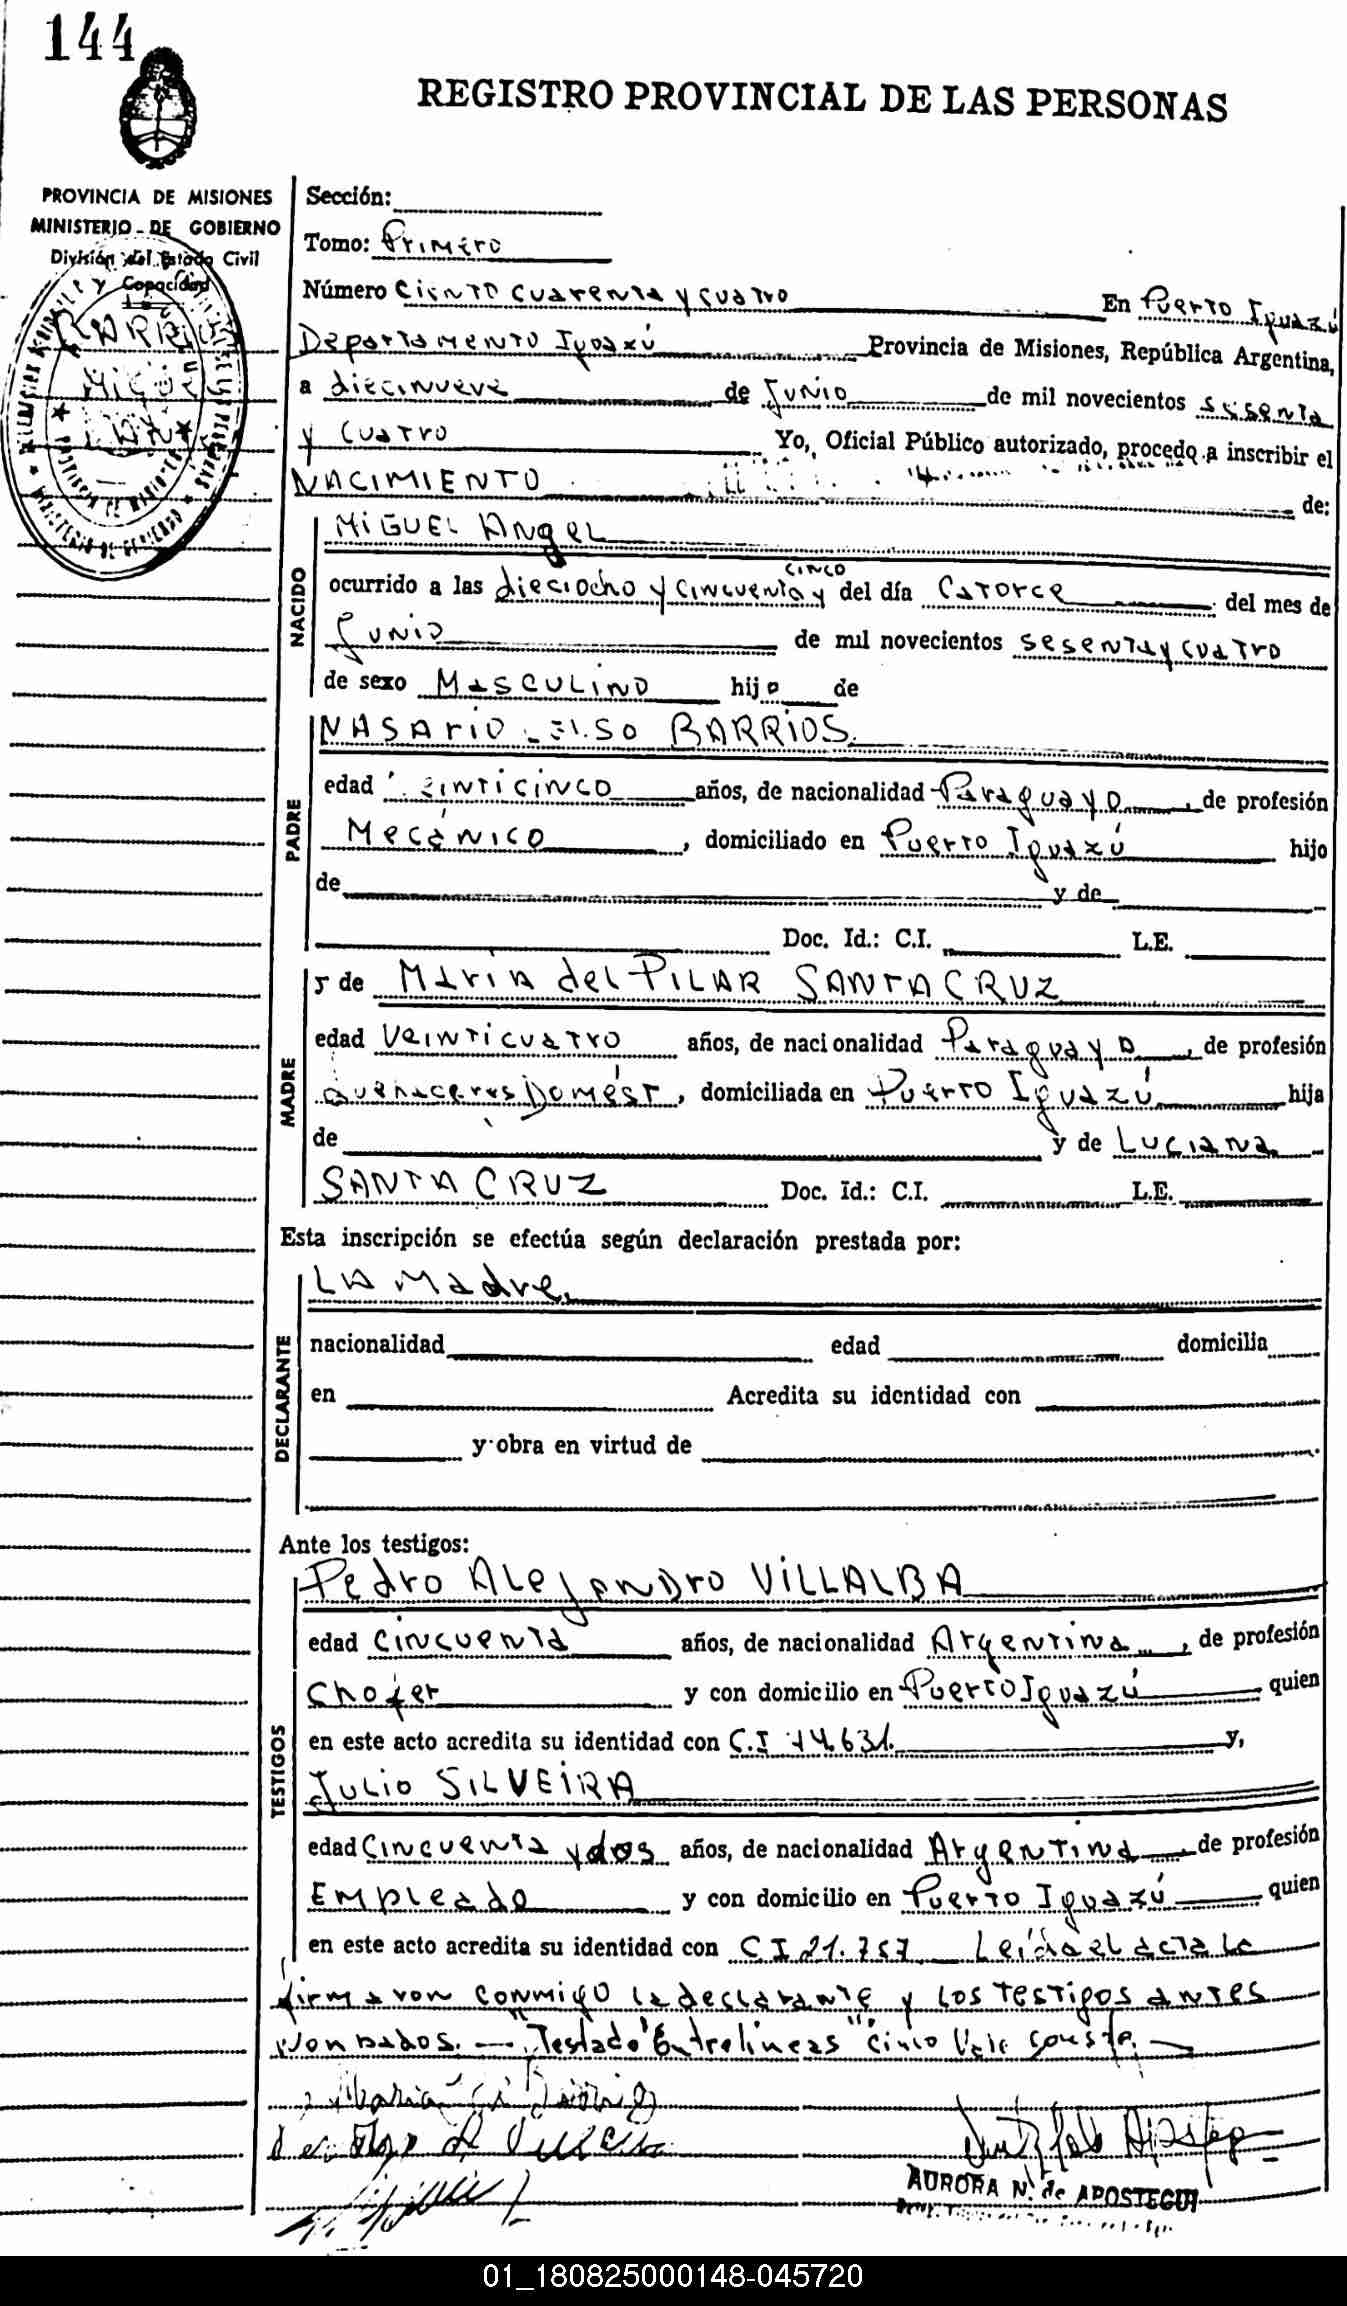 144
REGISTRO PROVINCIAL DE LAS PERSONAS
PROVINCIA DE MISIONES
MINISTERIO DE GOBIERNO
División del Estado Civil
y Capacidad
BARRIOS
MIGUEL
Sección:
Tomo: Primero
Número Ciento cuarenta y cuatro En Puerto Iguazú
Departamento Iguazú Provincia de Misiones, República Argentina,
a diecinueve de Junio de mil novecientos sesenta
y cuatro Yo, Oficial Público autorizado, procedo a inscribir el
NACIMIENTO de:
NACIDO
MIGUEL Angel
cinco
ocurrido a las dieciocho y cincuenta y del día Catorce del mes de
Junio de mil novecientos sesenta y cuatro
de sexo Masculino hijo de
PADRE
NASArio ELSO BARRIOS
edad veinticinco años, de nacionalidad Paraguayo, de profesión
Mecánico, domiciliado en Puerto Iguazú hijo
de y de
Doc. Id.: C.I. L.E.
MADRE
y de María del PILAR SANTA CRUZ
edad Veinticuatro años, de nacionalidad Paraguaya, de profesión
Quehaceres Domést, domiciliada en Puerto Iguazú hija
de y de Luciana
SANTA CRUZ Doc. Id.: C.I. L.E.
Esta inscripción se efectúa según declaración prestada por:
DECLARANTE
LA Madre.
nacionalidad edad domicilia
en Acredita su identidad con
y obra en virtud de
Ante los testigos:
TESTIGOS
Pedro Alejandro VILLALBA
edad cincuenta años, de nacionalidad Argentina, de profesión
Chofer y con domicilio en Puerto Iguazú quien
en este acto acredita su identidad con C.I 14.631. y,
Julio SILVEIRA
edad Cincuenta y dos años, de nacionalidad Argentina, de profesión
Empleado y con domicilio en Puerto Iguazú quien
en este acto acredita su identidad con C I 21.757 Leída el acta la
firmaron conmigo la declarante y los testigos antes
nombrados. — Testado Entrelíneas "cinco" Vale conste. —
AURORA N. de APOSTEGUI
01_180825000148-045720